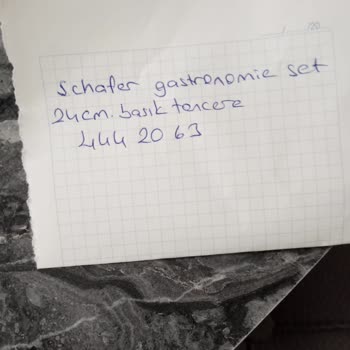 Schafer gastronomie set
24cm. basık tencere
444 20 63